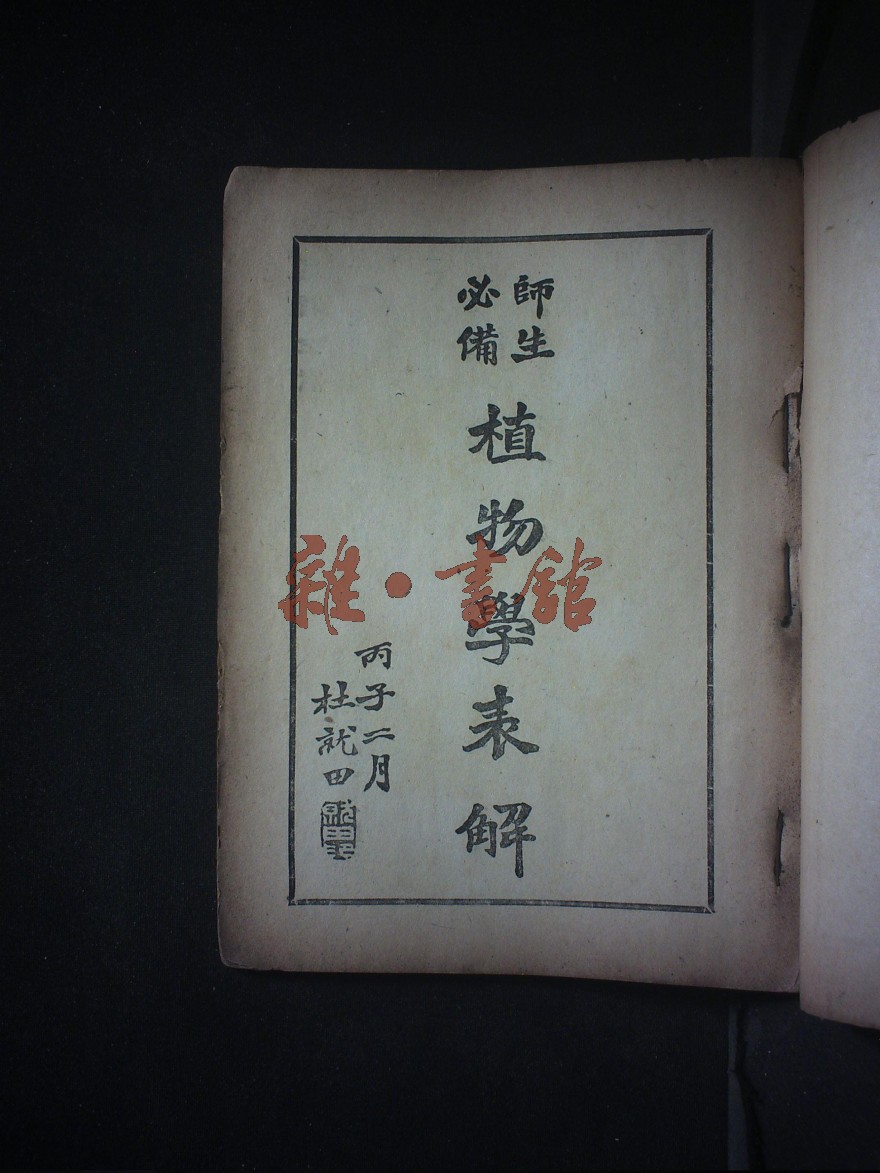 師生
必備
植物學表解
丙子二月
杜就田
雜·書館